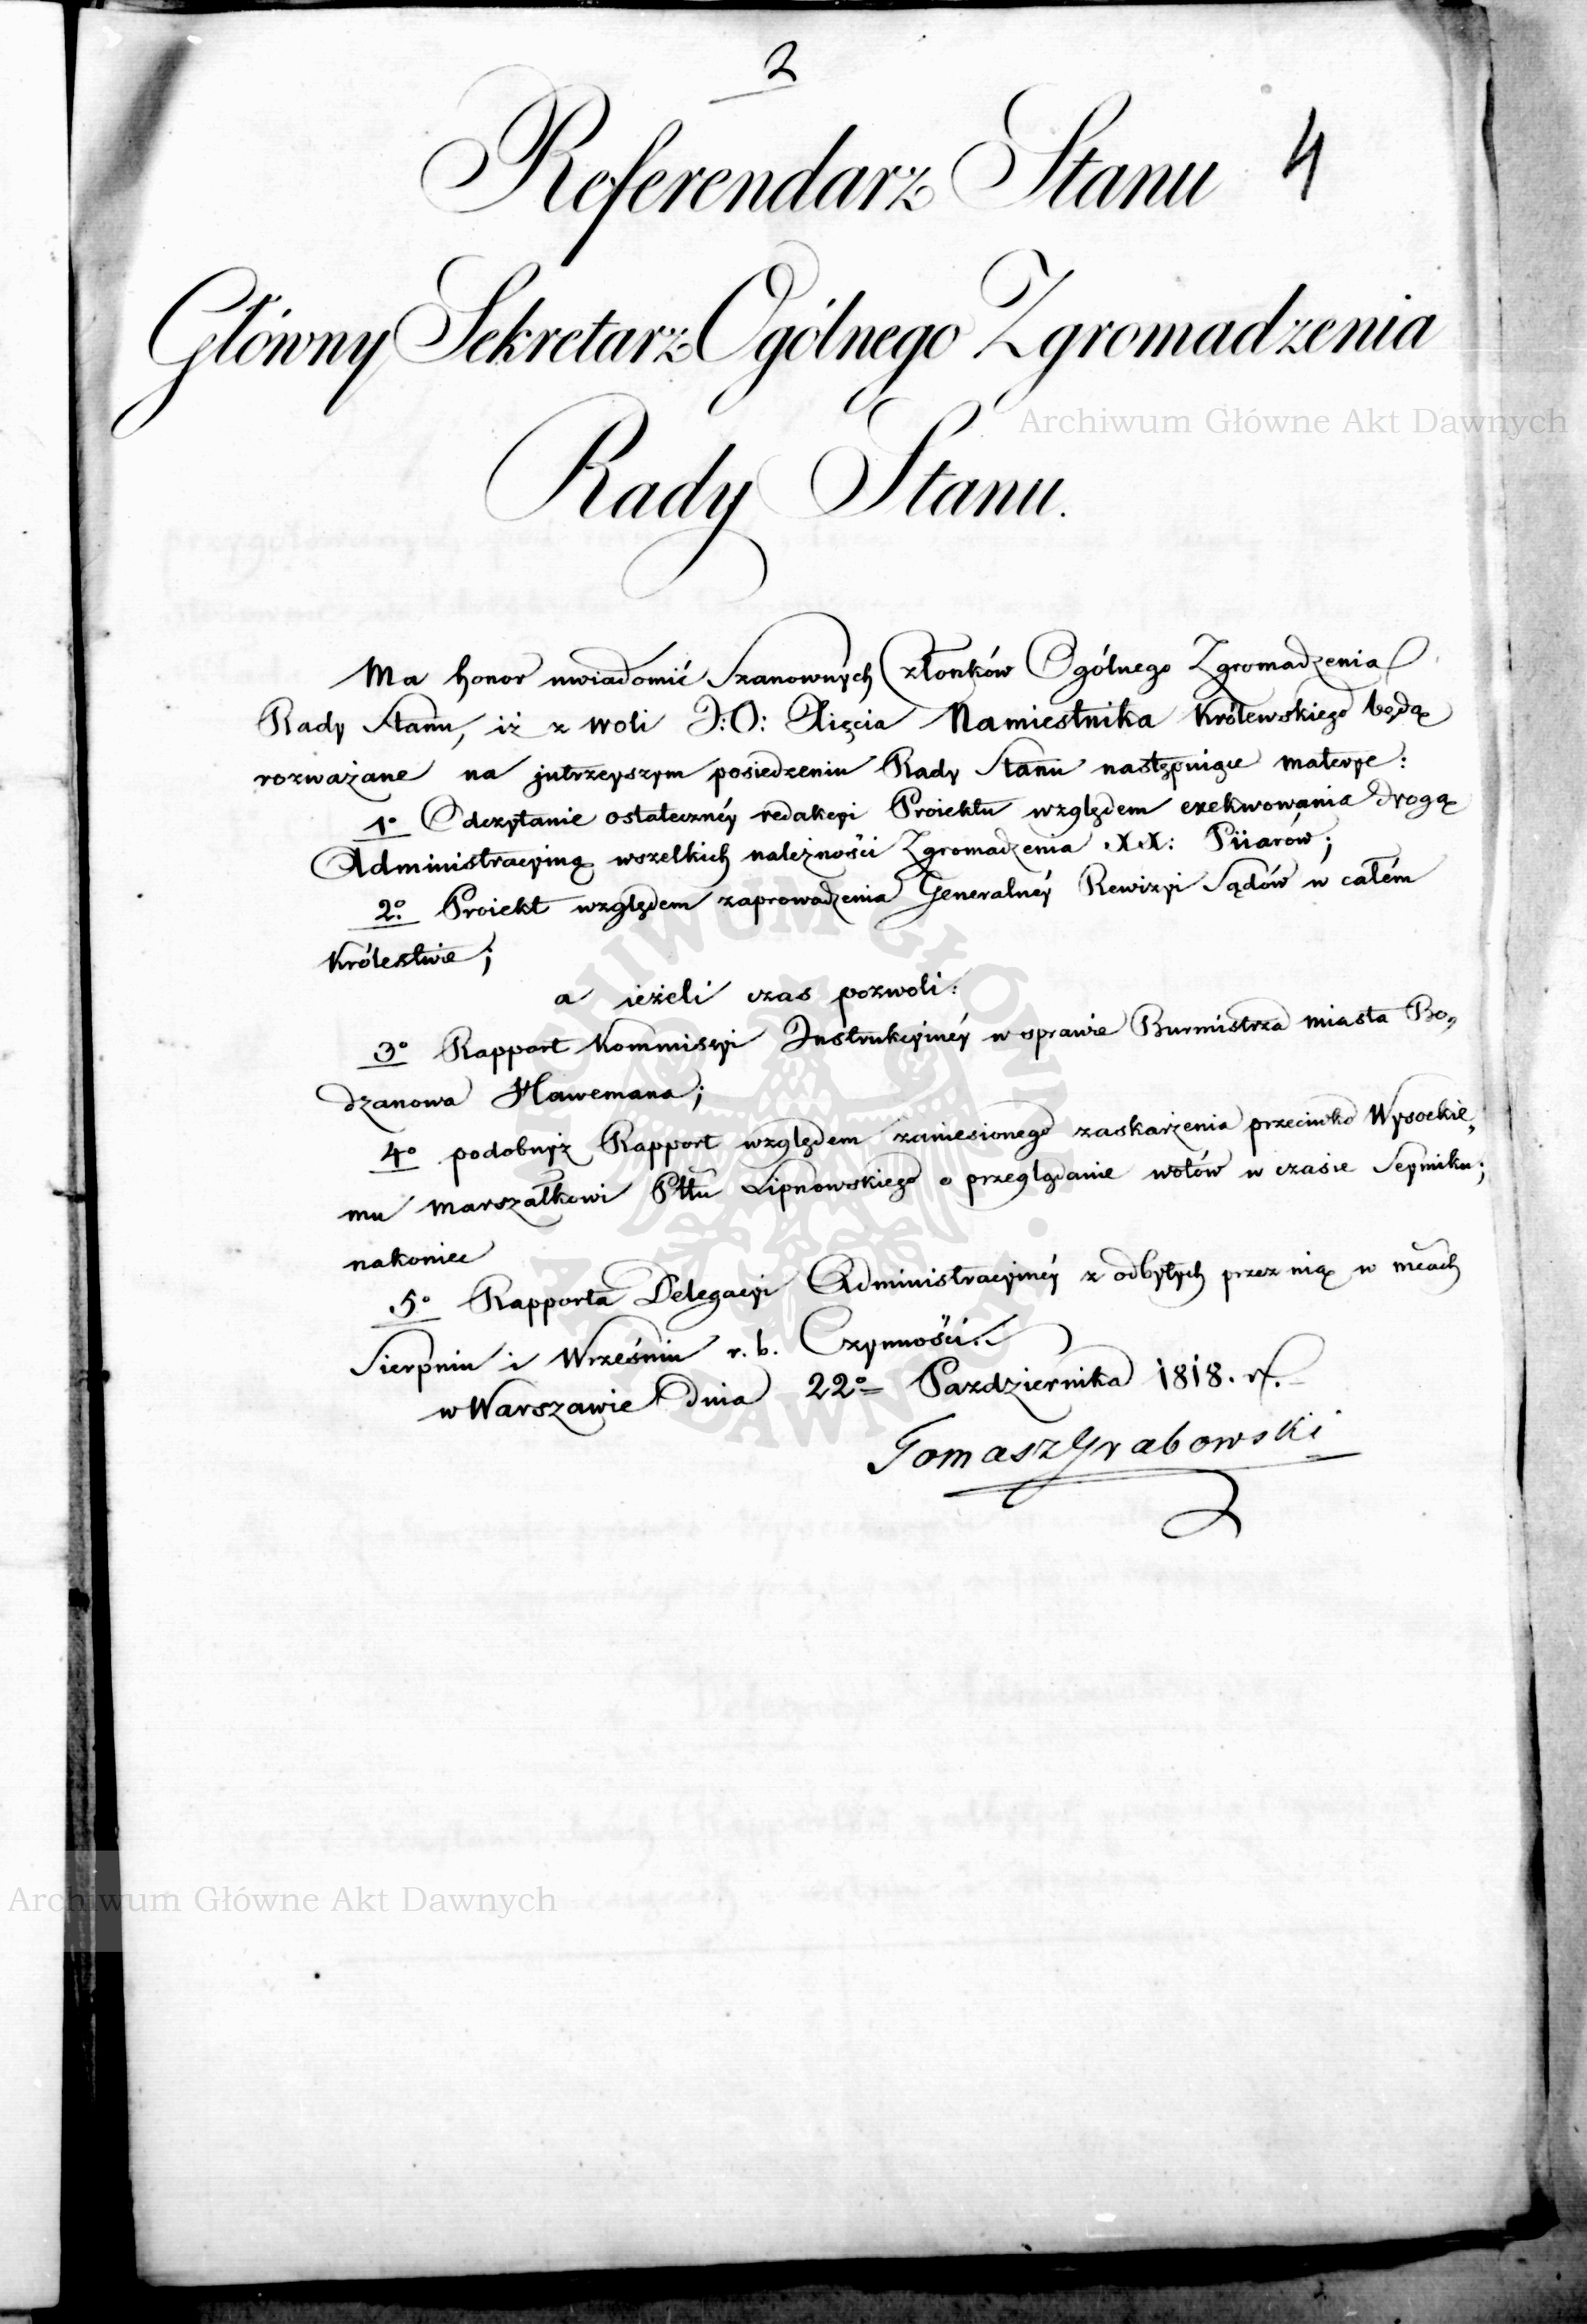 2
4
Referendarz Stanu
Główny Sekretarz Ogólnego Zgromadzenia
Archiwum Główne Akt Dawnych
Rady Stanu.
Ma honor uwiadomić Szanownych Członków Ogólnego Zgromadzenia
Rady Stanu, iż z woli J:O: Xięcia Namiestnika Królewskiego będą
rozważane na jutrzeyszym posiedzeniu Rady Stanu następuiące materye:
1o Odczytanie ostateczney redakcyi Proiektu względem exekwowania drogą
Administracyiną wszelkich należności Zgromadzenia XX: Piiarów;
2o Proiekt względem zaprowadzenia Generalnéy Rewizyi Sądów w całém
Królestwie;
a ieżeli czas pozwoli:
3o Rapport Kommissyi Instrukcyinéy w sprawie Burmistrza miasta Bo„
dzanowa Hawemana;
4o podobnyż Rapport względem zaniesionego zaskarżenia przeciwko Wysockie„
mu Marszałkowi Pttu Lipnowskiego o przeglądanie wotów w czasie Seymiku;
nakoniec
5o Rapporta Delegacyi Administracyinéy z odbytych przez nią w mcach
Sierpniu i Wrześniu r. b. Czynności.
w Warszawie dnia 22o Pazdziernika 1818. r.
Tomasz Grabowski
Archiwum Główne Akt Dawnych
ARCHIWUM GŁÓWNE AKT DAWNYCH